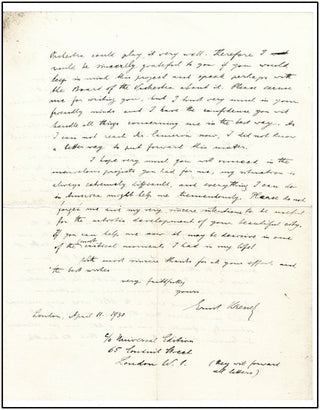 Orchestra could play it very well. Therefore I
would be sincerely grateful to you if you would
keep in mind this project and speak perhaps with
the Board of the Orchestra about it. Please excuse
me for writing you, but I trust very much in your
friendly mind and I have the confidence you will
handle all things concerning me in the best way. As
I can not reach Mr. Cameron now, I did not know
a better way to put forward this matter.
I hope very much you will succeed in the
marvelous projects you had for me, my situation is
always extremely difficult, and everything I can do
in America might help me tremendously. Please do not
forget me and my very sincere intentions to be useful
for the artistic development of your beautiful city.
If you can help me now it may be decisive in one
of the most critical moments I had in my life!
With most sincere thanks for all your efforts and
the best wishes
very faithfully
yours
Ernst Krenek
London, April 11. 1938
c/o Universal Edition
65 Conduit Street
London W. 1.
(they will forward
all letters)